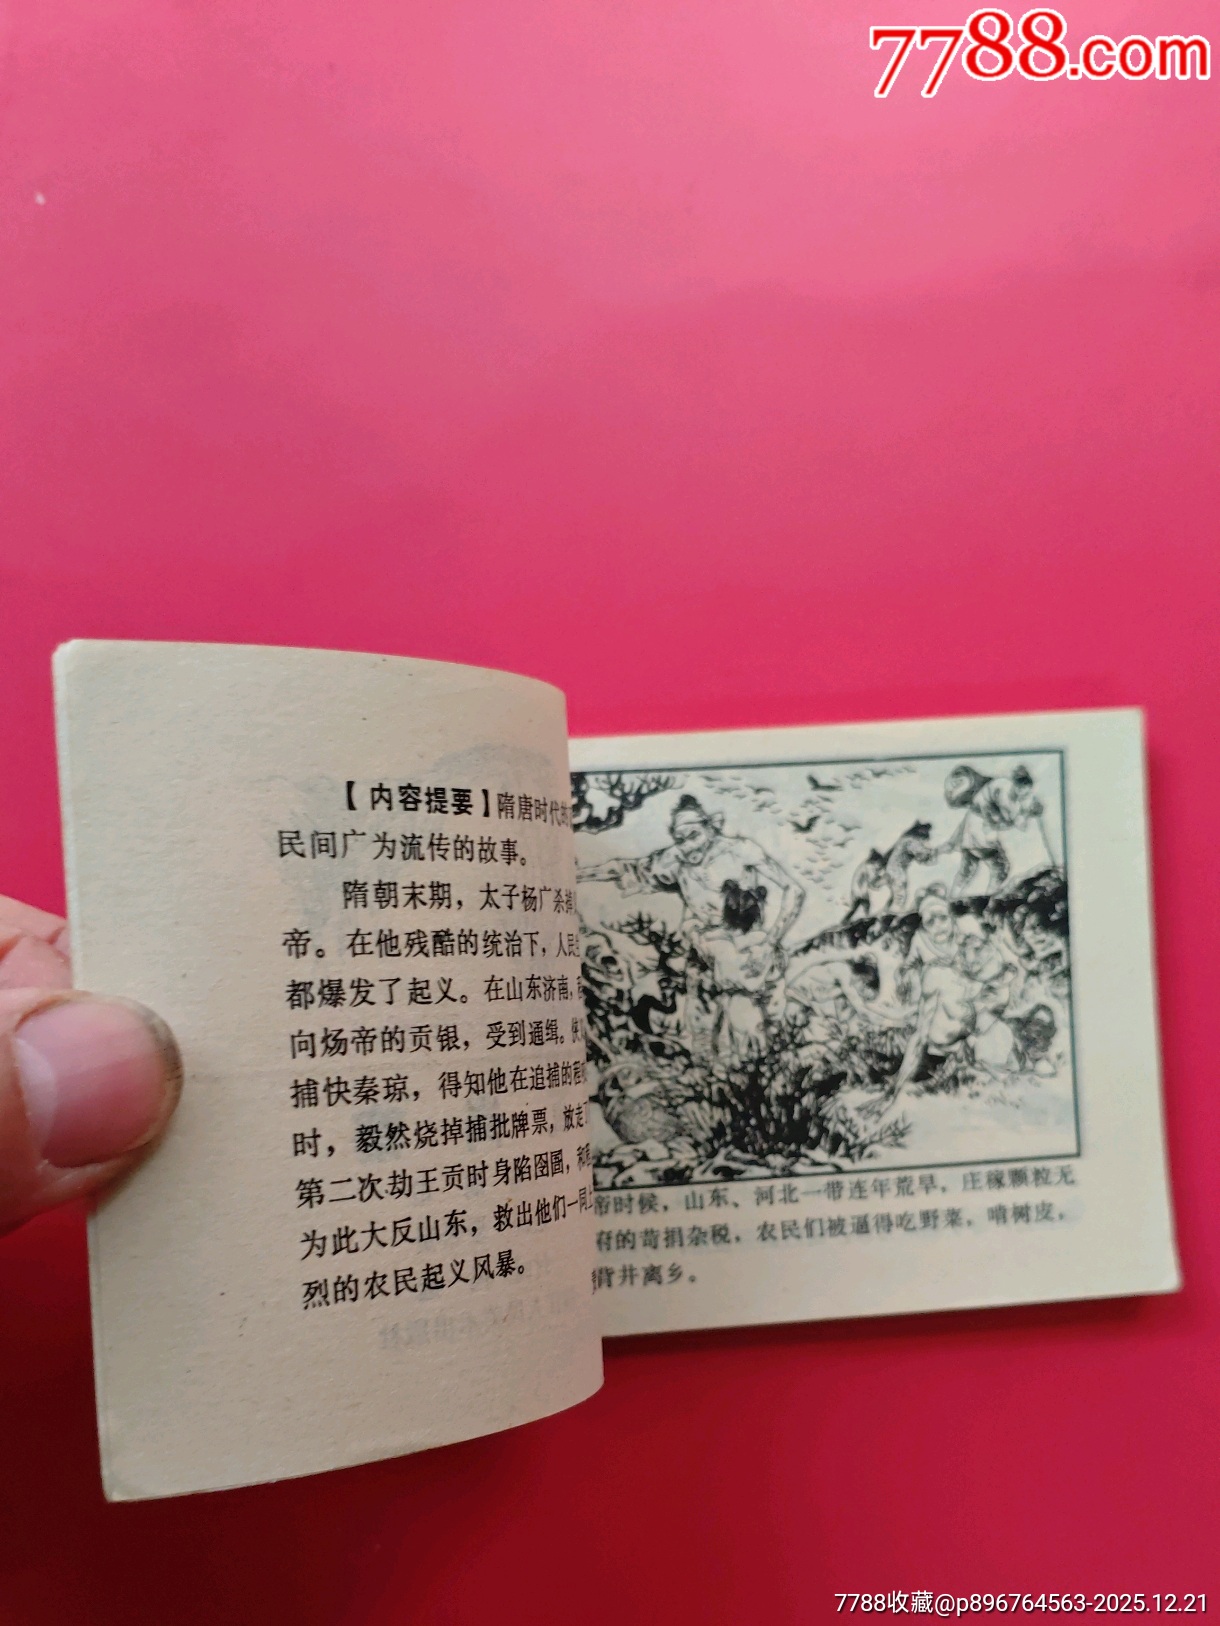 7788.com
【内容提要】隋唐时代的
民间广为流传的故事。
隋朝末期，太子杨广杀掉
帝。在他残酷的统治下，人民生
都爆发了起义。在山东济南，
向炀帝的贡银，受到通缉。
捕快秦琼，得知他在追捕的程
时，毅然烧掉捕批牌票，放走了
第二次劫王贡时身陷囹圄，和
为此大反山东，救出他们一同上
烈的农民起义风暴。
帝时候，山东、河北一带连年荒旱，庄稼颗粒无
府的苛捐杂税，农民们被逼得吃野菜，啃树皮，
背井离乡。
7788收藏@p896764563-2025.12.21